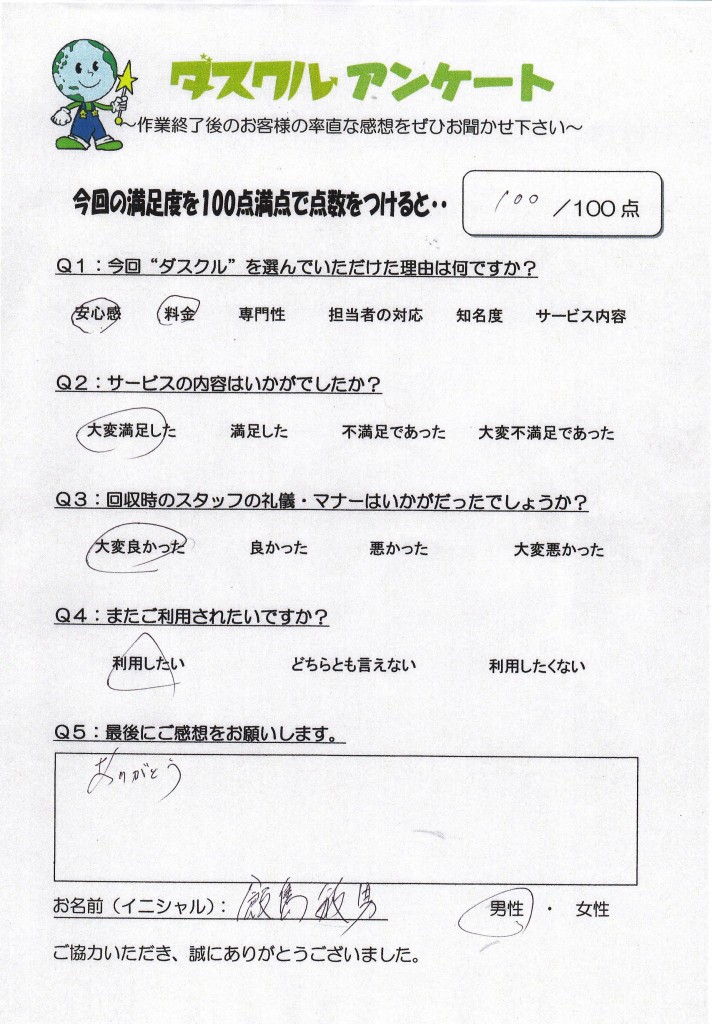 ダスクル アンケート
～作業終了後のお客様の率直な感想をぜひお聞かせ下さい～
今回の満足度を100点満点で点数をつけると‥ 100 /100点
Q1：今回“ダスクル”を選んでいただけた理由は何ですか？
安心感 料金 専門性 担当者の対応 知名度 サービス内容
Q2：サービスの内容はいかがでしたか？
大変満足した 満足した 不満足であった 大変不満足であった
Q3：回収時のスタッフの礼儀・マナーはいかがだったでしょうか？
大変良かった 良かった 悪かった 大変悪かった
Q4：またご利用されたいですか？
利用したい どちらとも言えない 利用したくない
Q5：最後にご感想をお願いします。
ありがとう
お名前（イニシャル）： 飯島敏男 男性 ・ 女性
ご協力いただき、誠にありがとうございました。